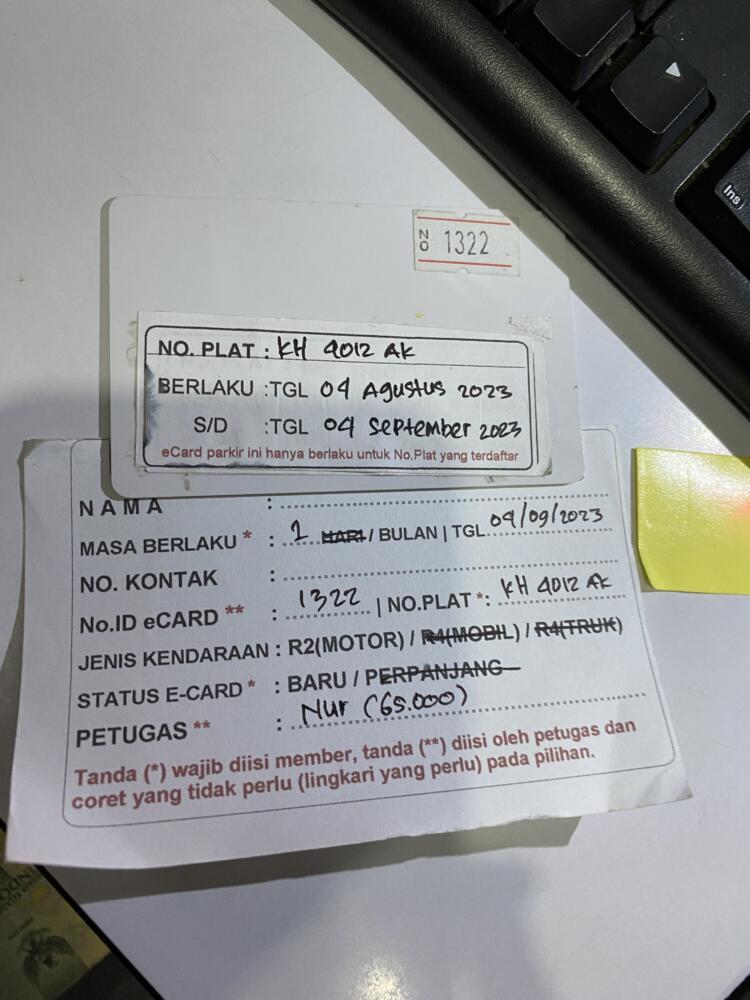 Ins
NO 1322
NO. PLAT : KH 4012 AK
BERLAKU :TGL 04 Agustus 2023
S/D :TGL 04 September 2023
eCard parkir ini hanya berlaku untuk No.Plat yang terdaftar
NAMA :
MASA BERLAKU * : 1 HARI / BULAN | TGL 04/09/2023
NO. KONTAK :
No.ID eCARD ** : 1322 | NO.PLAT *: KH 4012 AK
JENIS KENDARAAN : R2(MOTOR) / R4(MOBIL) / R4(TRUK)
STATUS E-CARD * : BARU / PERPANJANG
PETUGAS ** : Nur (65.000)
Tanda (*) wajib diisi member, tanda (**) diisi oleh petugas dan
coret yang tidak perlu (lingkari yang perlu) pada pilihan.